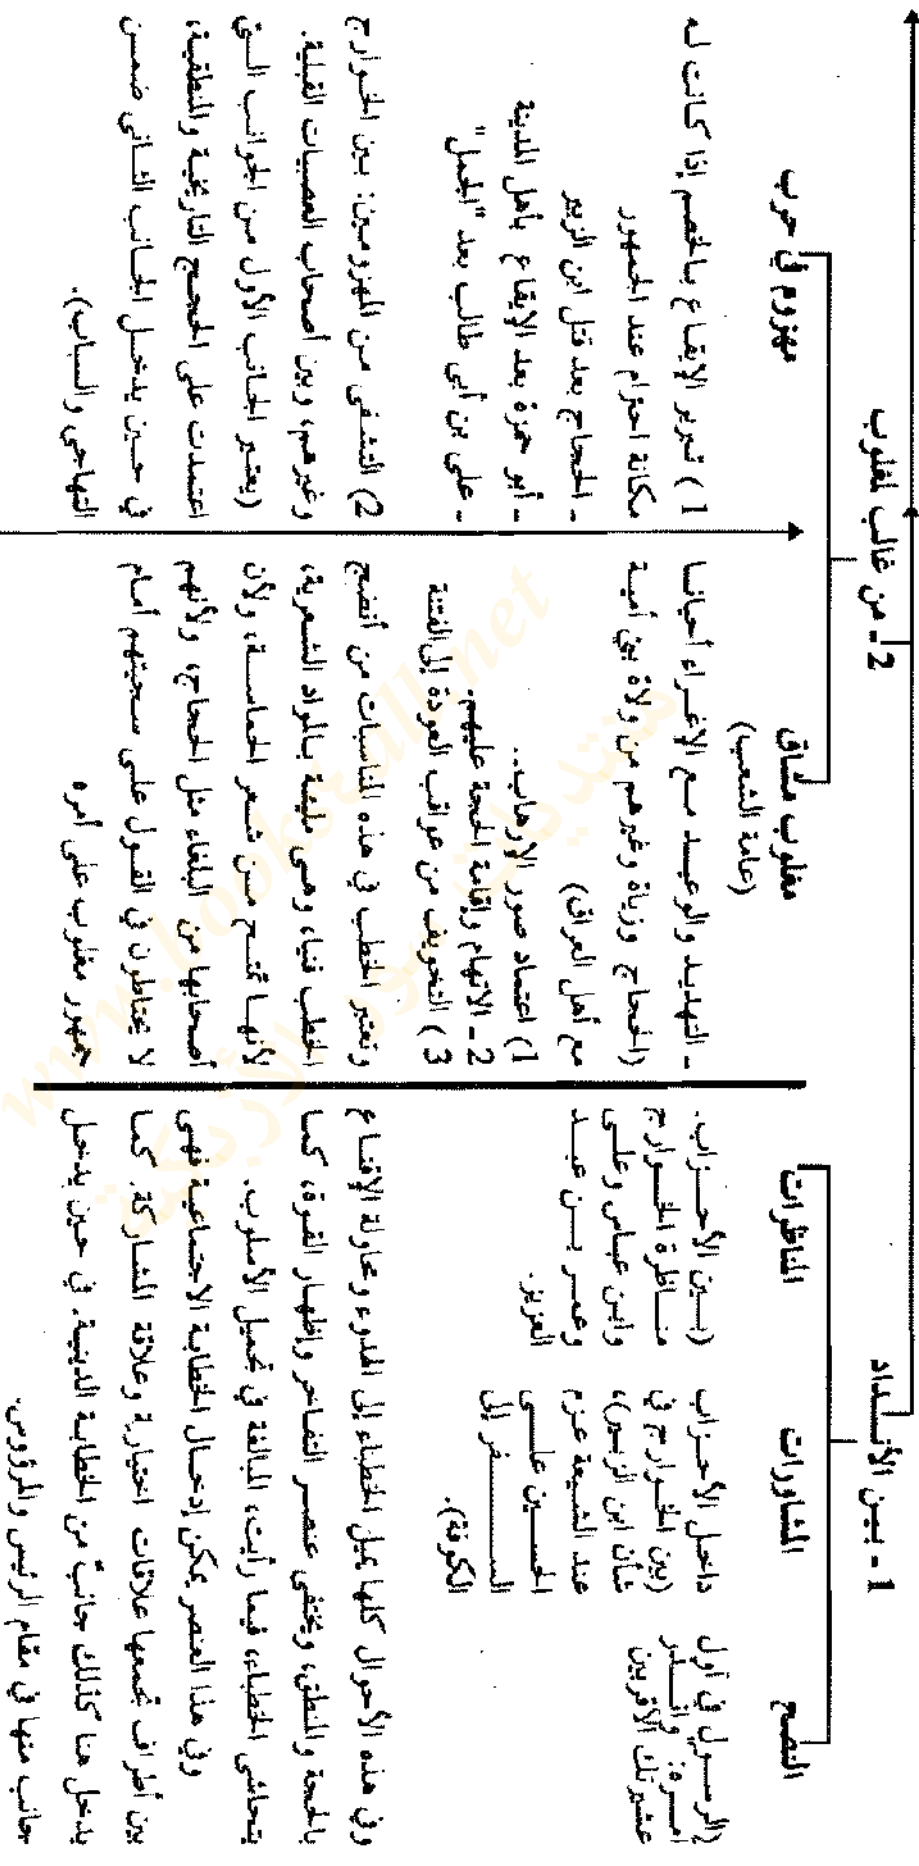 1 - بين الأنداد
النصح
المشاورات
المناظرات
(الرسول في أول
أمره: وانذر
عشيرتك الأقربين
داخل الأحزاب
(بين الخوارج في
شأن ابن الزبير)،
عند الشيعة عزم
الحسين على
السفر إلى
الكوفة).
(بين الأحزاب.
مناظرة الخوارج
وابن عباس وعلى
وعمر بن عبد
العزيز.
وفي هذه الأحوال كلها يميل الخطباء إلى الهدوء ومحاولة الإقناع
بالحجة والمنطق، ويختفى عنصر التفاخر وإظهار القوة، كما
يتحاشى الخطباء، فيما رأيت، المبالغة في تجميل الأسلوب.
وفي هذا العنصر يمكن إدخال الخطابة الاجتماعية فهى
بين أطراف تجمعها علاقات اختيارية وعلاقة المشاركة. كما
يدخل هنا كذلك جانبٌ من الخطابة الدينية. في حين يدخل
جانب منها في مقام الرئيس والمرؤوس.
2 ـ من غالب لمغلوب
مغلوب مشاق
(عامة الشعب)
ـ التهديد والوعيد مع الإغراء أحيانا
(الحجاج وزياد وغيرهم من ولاة بني أمية
مع أهل العراق)
1) اعتماد صور الإرهاب..
2 ـ الاتهام وإقامة الحجة عليهم.
3 ) التخويف من عواقب العودة إلى الفتنة
وتعتبر الخطب في هذه المناسبات من أنضج
الخطب فنيا، وهى مليئة بالمواد الشعرية،
لأنها تمتح من شعر الحماسة، ولأن
أصحابها من البلغاء مثل الحجاج، ولأنهم
لا يحتاطون في القول على سجيتهم أمام
جمهور مغلوب على أمره
مهزوم في حرب
1 ) تبرير الإيقاع بالخصم إذا كانت له
مكانة احترام عند الجمهور
ـ الحجاج بعد قتل ابن الزبير
ـ أبو حمزة بعد الإيقاع بأهل المدينة
ـ على بن أبى طالب بعد "الجمل"
2) التشفى من المهزومين: بين الخوارج
وغيرهم، وبين أصحاب العصبيات القبلية.
(يعتبر الجانب الأول من الجوانب التي
اعتمدت على الحجج التاريخية والمنطقية،
في حين يدخل الجانب الثانى ضمن
التهاجى والسباب).
www.books4all.net
منتديات سور الأزبكية